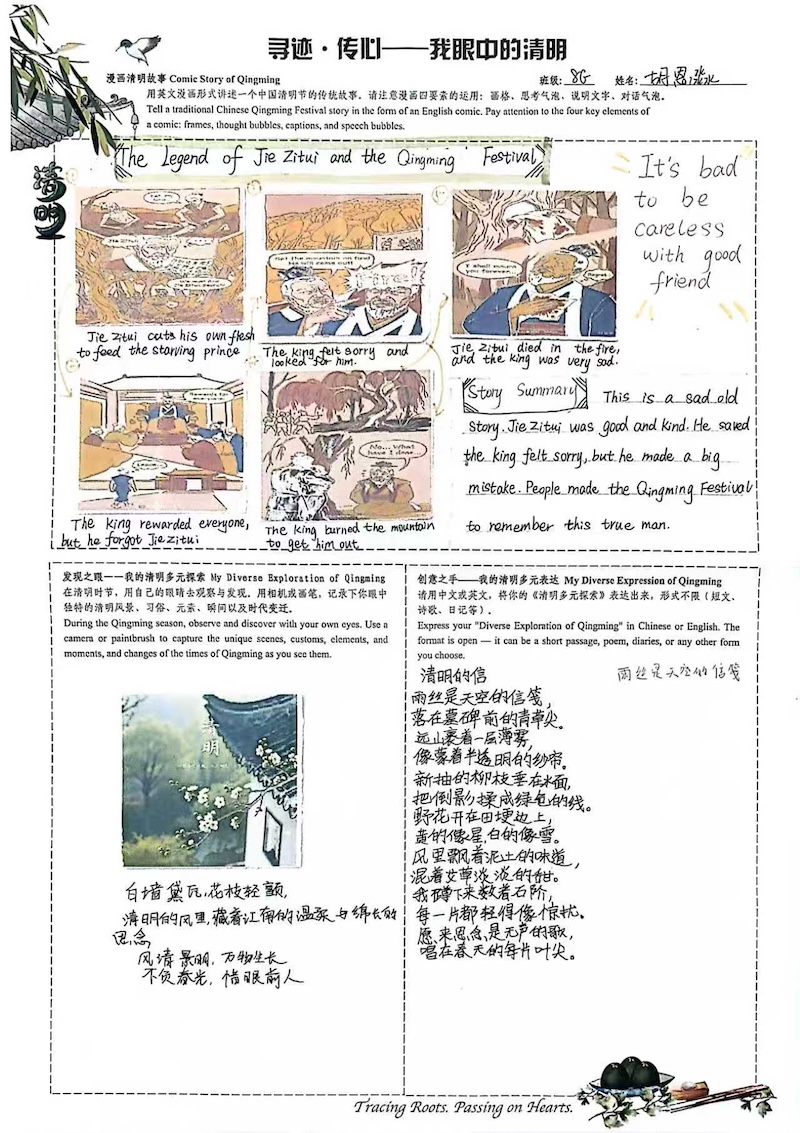 寻迹·传心——我眼中的清明
漫画清明故事 Comic Story of Qingming
班级: 8G 姓名: 胡恩
用英文漫画形式讲述一个中国清明节的传统故事。请注意漫画四要素的运用:画格、思考气泡、说明文字、对话气泡。
Tell a traditional Chinese Qingming Festival story in the form of an English comic. Pay attention to the four key elements of
a comic: frames, thought bubbles, captions, and speech bubbles.
清明
The Legend of Jie Zitui and the Qingming Festival
It's bad
to be
careless
with good
friend
Jie Zitui cuts his own flesh
to feed the starving prince
Set the mountain on fire!
He will come out!
The king felt sorry and
looked for him.
I shall mourn
you forever.
Regret
Jie Zitui died in the fire,
and the king was very sad.
Rewards for
The king rewarded everyone,
but he forgot Jie Zitui
No... What
have I done
The king burned the mountain
to get him out
Story Summary
This is a sad old
story. Jie Zitui was good and kind. He saved
the king felt sorry, but he made a big
mistake. People made the Qingming Festival
to remember this true man.
发现之眼——我的清明多元探索 My Diverse Exploration of Qingming
在清明时节,用自己的眼睛去观察与发现。用相机或画笔,记录下你眼中
独特的清明风景、习俗、元素、瞬间以及时代变迁。
During the Qingming season, observe and discover with your own eyes. Use a
camera or paintbrush to capture the unique scenes, customs, elements, and
moments, and changes of the times of Qingming as you see them.
清明
白墙黛瓦,花枝轻颤,
清明的风里,藏着江南的温柔与绵长的
思念
风清景明,万物生长
不负春光,惜眼前人
创意之手——我的清明多元表达 My Diverse Expression of Qingming
请用中文或英文,将你的《清明多元探索》表达出来,形式不限(短文、
诗歌、日记等)。
Express your "Diverse Exploration of Qingming" in Chinese or English. The
format is open — it can be a short passage, poem, diaries, or any other form
you choose.
清明的信
雨丝是天空的信笺
雨丝是天空的信笺,
落在墓碑前的青草尖。
远山裹着一层薄雾,
像蒙着半透明的纱帘。
新抽的柳枝垂在水面,
把倒影揉成绿色的线。
野花开在田埂边上,
黄的像星,白的像雪。
风里飘着泥土的味道,
混着艾草淡淡的甜。
我蹲下来数着石阶,
每一片都轻得像惊扰。
愿来思念是无声的歌,
唱在春天的每片叶尖。
Tracing Roots. Passing on Hearts.